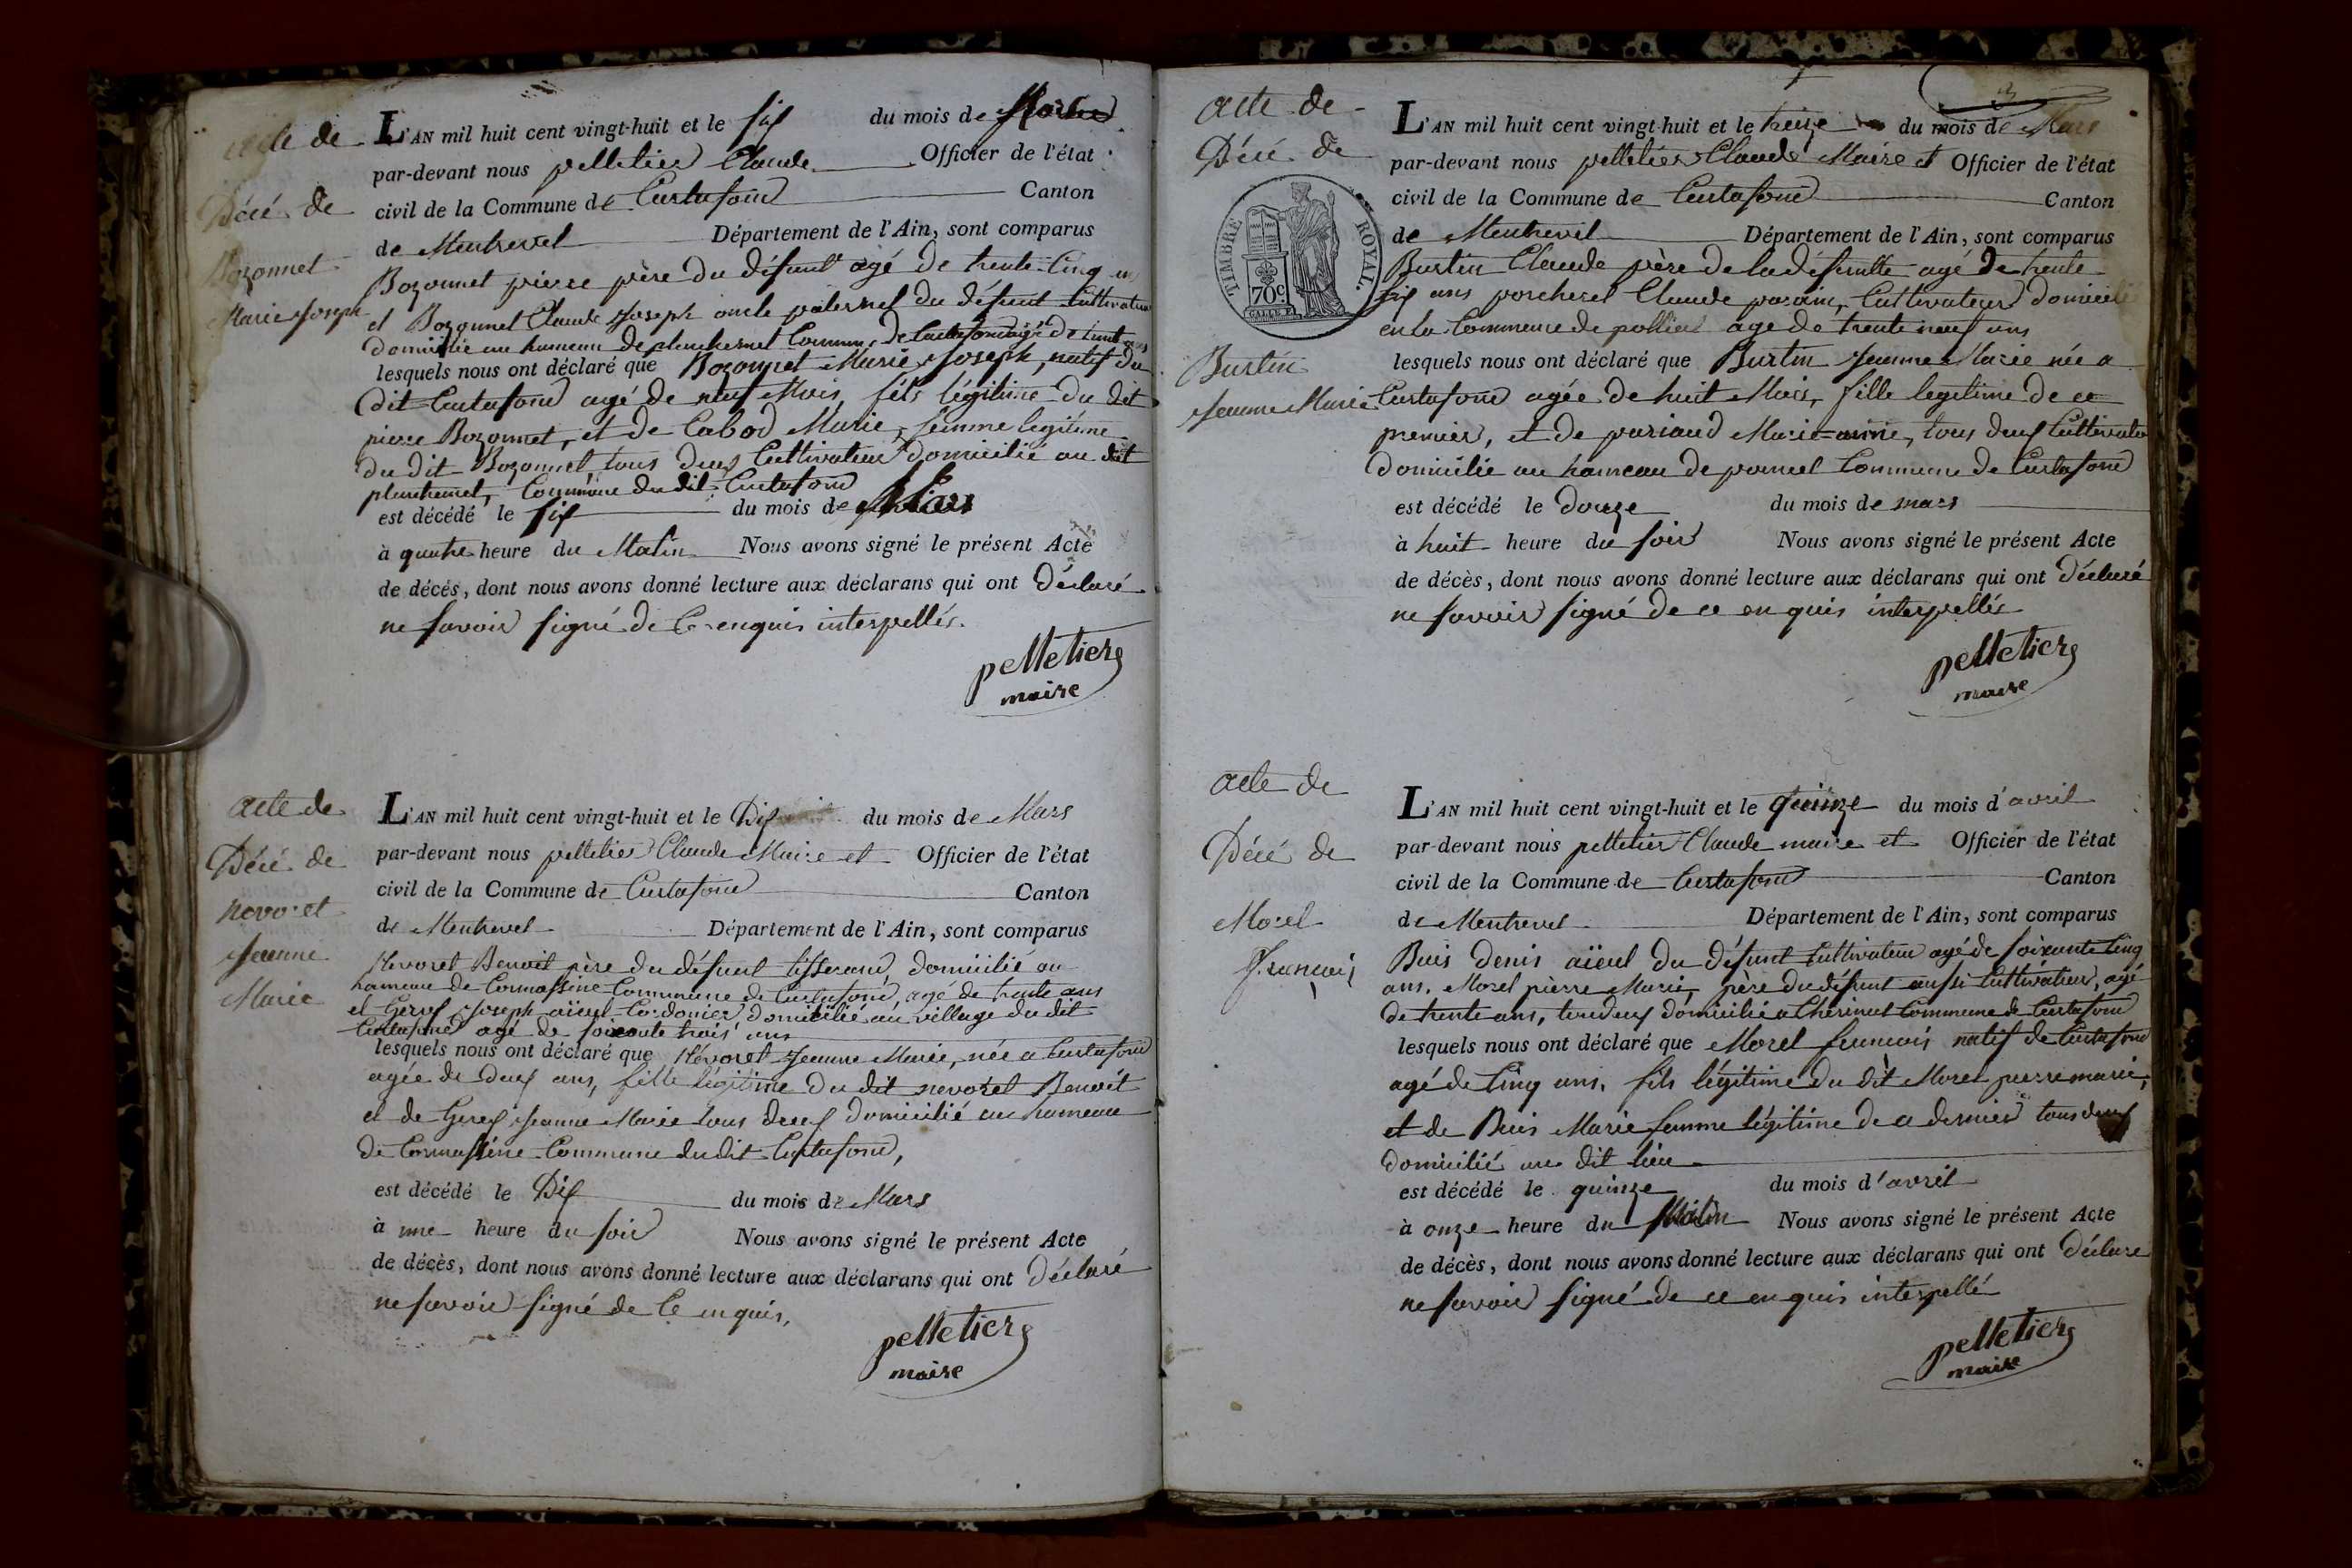 acte de
Décé de
Bozonnet
Marie Joseph
L'AN mil huit cent vingt-huit et le six du mois de Mars
par-devant nous pelletier Claude Officier de l'état
civil de la Commune de Curtafond Canton
de Montrevel Département de l'Ain, sont comparus
Bozonnet pierre père du défunt agé de trente-Cinq
et Bozonnet Claude Joseph oncle paternel du défunt Cultivateur
domicilié au hameau de Commune de Curtafond agé de
lesquels nous ont déclaré que Bozonnet Marie Joseph, natif du
dit Curtafond agé de neuf Mois, fils légitime du dit
pierre Bozonnet, et de Cabod Marie, femme legitime
du dit Bozonnet, tous deux Cultivateur domicilié au dit
Commune du dit Curtafond
est décédé le six du mois de Mars
à quatre heure du Matin Nous avons signé le présent Acte
de décés, dont nous avons donné lecture aux déclarans qui ont Déclaré
ne savoir signé de Ce enquis interpellés.
pelletier
maire
acte de
Décé de
Nevoret
Jeanne
Marie
L'AN mil huit cent vingt-huit et le Dix du mois de Mars
par-devant nous pelletier Claude Maire et Officier de l'état
civil de la Commune de Curtafond Canton
de Montrevel Département de l'Ain, sont comparus
Nevoret Benoit père du défunt tisserand, domicilié au
hameau de Cormassine Commune de Curtafond, agé de trente ans
et Joseph aïeul Cordonier domicilié au village du dit
Curtafond agé de soixante trois ans
lesquels nous ont déclaré que Névoret Jeanne Marie, née a Curtafond
agée de deux ans, fille légitime du dit nevoret Benoit
et de Jeanne Marie tous deux domicilié au hameau
de Cormassine Commune du dit Curtafond,
est décédé le Dix du mois de Mars
à une heure du soir Nous avons signé le présent Acte
de décès, dont nous avons donné lecture aux déclarans qui ont Déclaré
ne savoir signé de Ce enquis,
pelletier
maire
3
acte de
Décé de
TIMBRE ROYAL.
70c
Burtin
Jeanne Marie
L'AN mil huit cent vingt-huit et le treize du mois de Mars
par-devant nous pelletier Claude Maire et Officier de l'état
civil de la Commune de Curtafond Canton
de Montrevel Département de l'Ain, sont comparus
Burtin Claude père de la défuntte agé de trente
six ans porcherel Claude parain, Cultivateur domicilié
en la Commune de polliat agé de trente neuf ans
lesquels nous ont déclaré que Burtin Jeanne Marie née a
Curtafond agée de huit Mois, fille legitime de ce
premier, et de pariaud Marie-anne, tous deux Cultivateur
domicilié au hameau de Commune de Curtafond
est décédé le douze du mois de mars
à huit heure du soir Nous avons signé le présent Acte
de décès, dont nous avons donné lecture aux déclarans qui ont Déclaré
ne savoir signé de ce enquis interpellés
pelletier
maire
acte de
Décé de
Morel
François
L'AN mil huit cent vingt-huit et le quinze du mois d'avril
par-devant nous pelletier Claude maire et Officier de l'état
civil de la Commune de Curtafond Canton
de Montrevel Département de l'Ain, sont comparus
Buis denis aïeul du défunt Cultivateur agé de soixante Cinq
ans, Morel pierre Marie, père du défunt aussi Cultivateur, agé
de trente ans, tousdeux domicilié a Commune de Curtafond
lesquels nous ont déclaré que Morel francois natif de Curtafond
agé de Cinq ans, fils légitime du dit Morel pierre marie,
et de Buis Marie femme légitime de ce dernier tous deux
domicilié au dit lieu
est décédé le quinze du mois d'avril
à onze heure du Matin Nous avons signé le présent Acte
de décès, dont nous avons donné lecture aux déclarans qui ont Déclaré
ne savoir signé de ce enquis interpellé
pelletier
maire